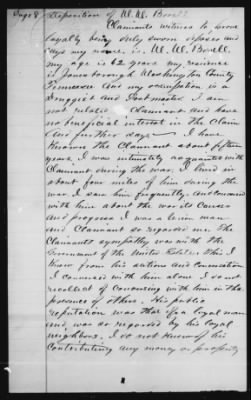 Page 8 Deposition of W. W.
Claimants witness to prove
loyalty being duly sworn deposes and
says my name is W. W.
my age is 62 years my residence
is Jonesborough Washington County
Tennessee And my occupation is a
Druggist and Post master I am
not related to Claimant and have
no beneficial interest in the Claim
And further says I have
known the Claimant about fifteen
years. I was intimately acquainted with
Claimant during the war. I lived in
about four miles of him during the
war. I saw him frequently and conversed
with him about the war its Causes
and progress I was a union man
and Claimant so regarded me. The
Claimants sympathy was with the
Government of the United States. this I
know from his actions and conversation
I conversed with him alone I do not
recollect of conversing with him in the
presence of others. His public
reputation was that of a loyal man
and was so regarded by his loyal
neighbors. I do not know of his
contributing any money or property